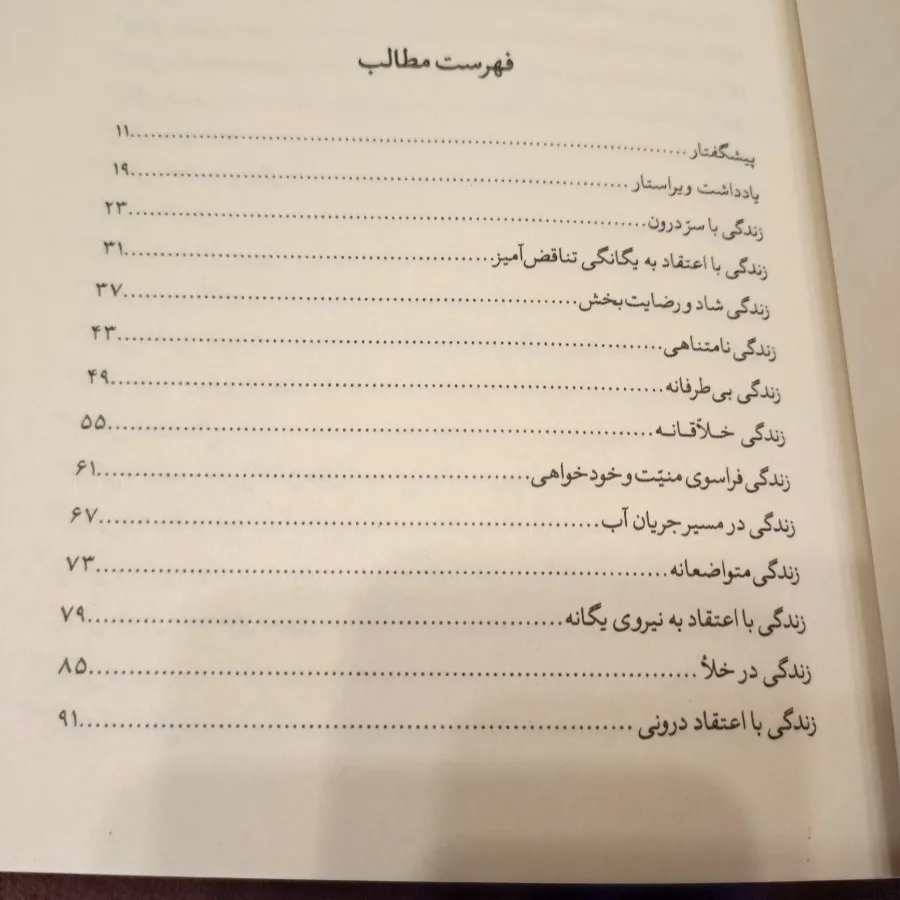 فهرست مطالب
پیشگفتار ........................ ۱۱
یادداشت ویراستار ........................ ۱۹
زندگی با سرّ درون ........................ ۲۳
زندگی با اعتقاد به یگانگی تناقض‌آمیز ........................ ۳۱
زندگی شاد و رضایت‌بخش ........................ ۳۷
زندگی نامتناهی ........................ ۴۳
زندگی بی‌طرفانه ........................ ۴۹
زندگی خلاّقانه ........................ ۵۵
زندگی فراسوی منیّت و خودخواهی ........................ ۶۱
زندگی در مسیر جریان آب ........................ ۶۷
زندگی متواضعانه ........................ ۷۳
زندگی با اعتقاد به نیروی یگانه ........................ ۷۹
زندگی در خلأ ........................ ۸۵
زندگی با اعتقاد درونی ........................ ۹۱